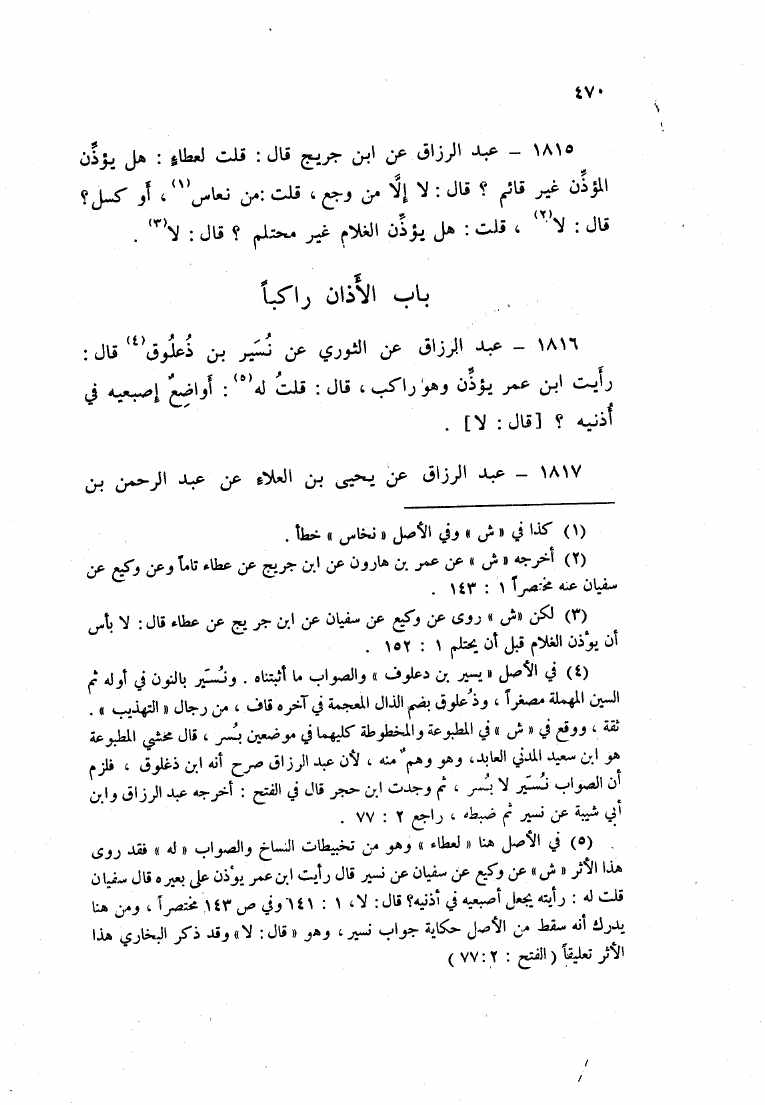 ٤٧٠
١٨١٥ – عبد الرزاق عن ابن جريج قال : قلت لعطاءٍ : هل يؤذِّن
المؤذِّن غير قائم ؟ قال : لا إلَّا من وجع ، قلت :من نعاس(١) ، أو كسل ؟
قال : لا(٢) ، قلت : هل يؤذِّن الغلام غير محتلم ؟ قال : لا(٣) .
باب الأَذان راكباً
١٨١٦ – عبد الرزاق عن الثوري عن نُسَير بن ذُعلُوق(٤) قال :
رأَيت ابن عمر يؤذِّن وهو راكب ، قال : قلتُ له(٥) : أَواضِعٌ إصبعيه في
أُذنيه ؟ [قال : لا] .
١٨١٧ – عبد الرزاق عن يحيى بن العلاءِ عن عبد الرحمن بن
(١) كذا في « ش » وفي الأصل « نخاس » خطأ .
(٢) أخرجه « ش » عن عمر بن هارون عن ابن جريج عن عطاء تاماً وعن وكيع عن
سفيان عنه مختصراً ١ : ١٤٣ .
(٣) لكن «ش » روى عن وكيع عن سفيان عن ابن جريج عن عطاء قال : لا بأس
أن يؤذن الغلام قبل أن يحتلم ١ : ١٥٢ .
(٤) في الأصل « يسير بن دعلوف » والصواب ما أثبتناه . ونُسَير بالنون في أوله ثم
السين المهملة مصغراً ، وذُعلوق بضم الذال المعجمة في آخره قاف ، من رجال « التهذيب » .
ثقة ، ووقع في « ش » في المطبوعة والمخطوطة كليهما في موضعين بُسر ، قال محشي المطبوعة
هو ابن سعيد المدني العابد، وهو وهمٌ منه ، لأن عبد الرزاق صرح أنه ابن ذغلوق ، فلزم
أن الصواب نُسَير لا بُسر ، ثم وجدت ابن حجر قال في الفتح : أخرجه عبد الرزاق وابن
أبي شيبة عن نسير ثم ضبطه ، راجع ٢ : ٧٧ .
(٥) في الأصل هنا « لعطاء » وهو من تخبيطات النساخ والصواب « له » فقد روى
هذا الأثر « ش » عن وكيع عن سفيان عن نسير قال رأيت ابن عمر يؤذن على بعيره قال سفيان
قلت له : رأيته يجعل أصبعيه في أذنيه؟ قال : لا، ١ : ١٤١ وفي ص ١٤٣ مختصراً ، ومن هنا
يدرك أنه سقط من الأصل حكاية جواب نسير ، وهو « قال : لا » وقد ذكر البخاري هذا
الأثر تعليقاً ( الفتح : ٢: ٧٧ )